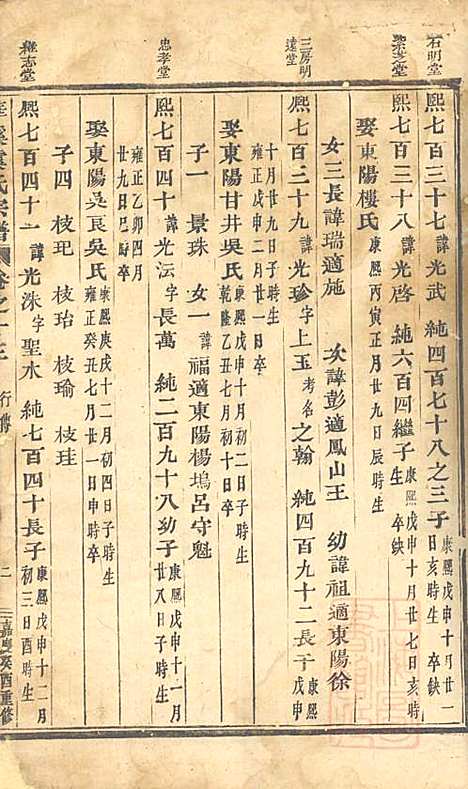 石明堂
熙七百三十七諱光武 純四百七十八之三子 康熙戊申十月廿一日亥時生 卒缺
聚芝堂
熙七百三十八諱光啓 純六百四繼子 康熙戊申十月廿七日亥時生 卒缺
娶東陽樓氏 康熙丙寅正月廿九日辰時生
女三長諱瑞適施 次諱彭適鳳山王 幼諱祖適東陽徐
三房明遠堂
熙七百三十九諱光珍字上玉考名之翰 純四百九十二長子 康熙戊申十月廿九日子時生 雍正戊申二月一日卒
娶東陽甘井吳氏 康熙 初二日子時生 乾隆乙丑七月初七日卒
子一 景珠 女一諱福適東陽楊塢呂守魁
忠孝堂
熙七百四十諱光沄字長萬 純二百九十八幼子 康熙戊申十一月廿八日子時生 雍正乙卯四月廿九日巳時卒
娶東陽吳良吳氏 康熙庚戌十二月初四日子時生 雍正癸丑七月廿一日申時卒
子四 枝玘 枝珆 枝瑜 枝珪
雍志堂
熙七百四十一諱光洙字聖水 純七百四十長子 康熙戊申十二月初三日酉時生
氏宗譜 卷之十三 行傳 二 嘉慶癸酉重修